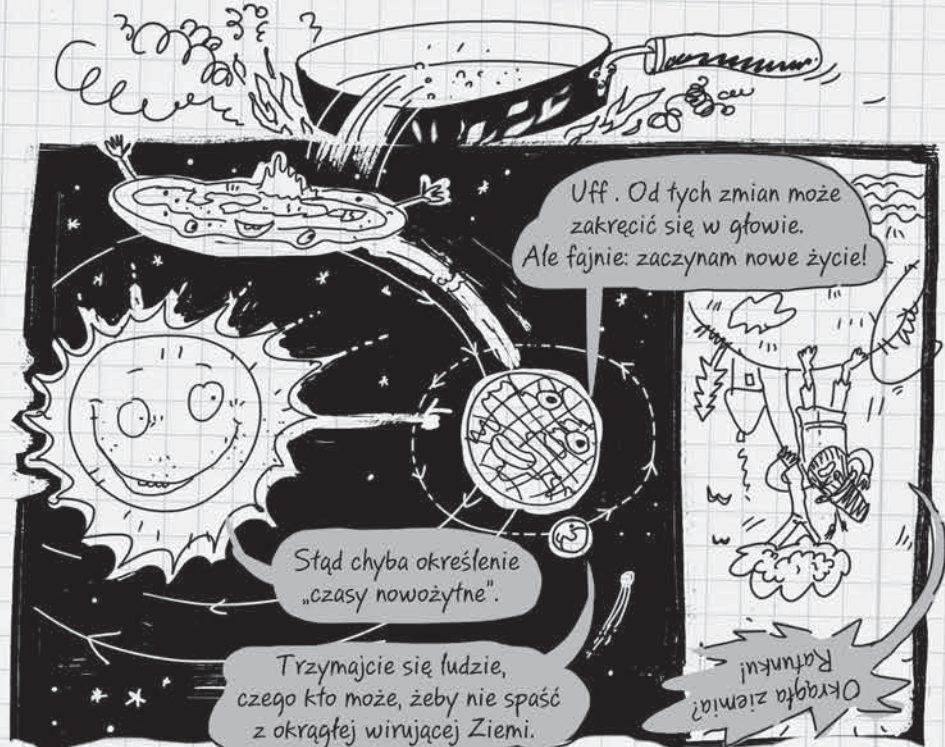 Uff . Od tych zmian może
zakręcić się w głowie.
Ale fajnie: zaczynam nowe życie!
Stąd chyba określenie
„czasy nowożytne”.
Trzymajcie się ludzie,
czego kto może, żeby nie spaść
z okrągłej wirującej Ziemi.
Okrągła ziemia?
Ratunku!